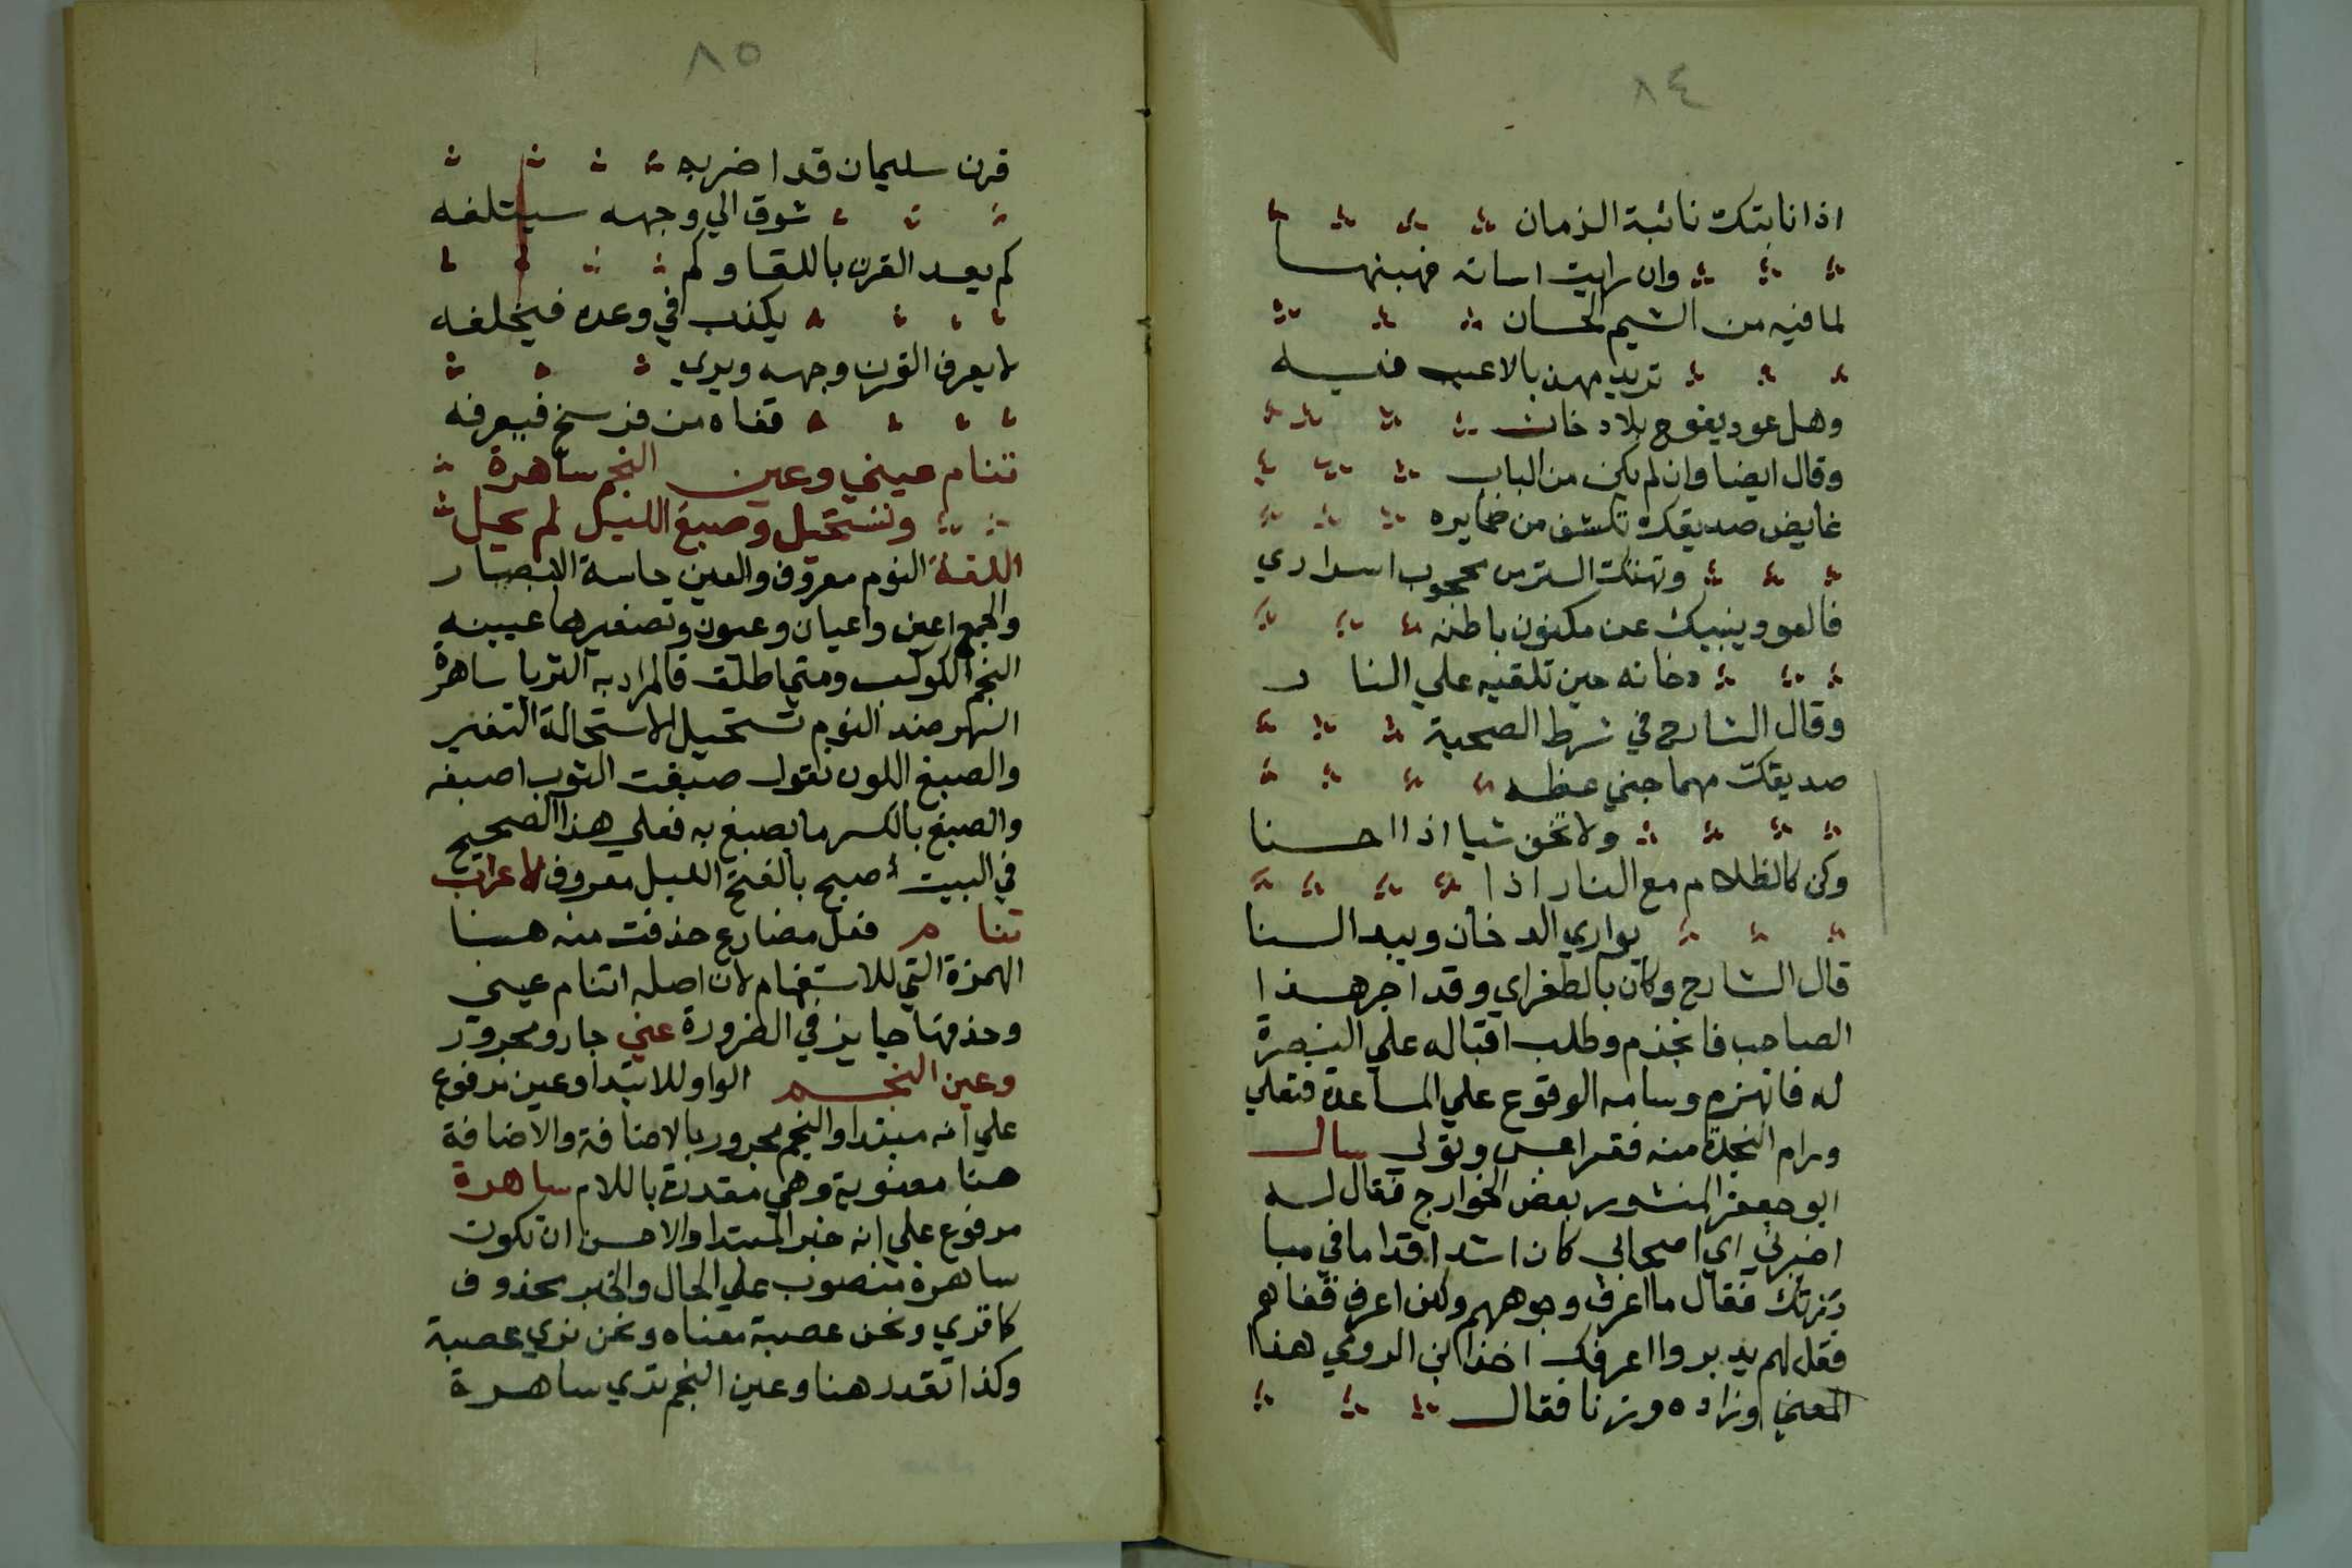 ٨٤
اذا نابتك نائبة الزمان
وان رايت اساته فهبنهـا
لما فيه من الشيم الحسان
تريد مهذبا لاعيب فيـه
وهل عود يفوح بلا دخان
وقال ايضا وان لم يكن من الباب
غايض صديقك تكشف من ضمايره
وتهتك الستر من محجوب اسراري
فالعود ينبيك عن مكنون باطنه
دخانه حين تلقيه علي النار
وقال الشارح في شرط الصحبة
صديقك مهما جني عطه
ولا تخن شيا اذا احسنا
وكن كالظلام مع النار اذا
يواري الدخان ويبدا السنا
قال الشارح وكان بالطغراي وقد اجر هـذا
الصاحب فانجذم وطلب اقباله علي النصرة
له فانهزم وسامه الوقوع علي المساعدة فتعلي
ورام النجدة منه فقر وتولي سال
ابو جعفر المنشور بعض الخوارج فقال لـه
اخبرني اي اصحابي كان اشد اقداما في مبا
رزتك فقال ما اعرف وجوههم ولكن اعرف قفاهم
فقل لهم يدبروا اعرفك اخذ ابن الرومي هذا
المعني وزاده وزنا فقال
٨٥
قرن سليمان قد اضر به
شوق الي وجهه سيتلفه
كم يعد القرن باللقا وكم
يكذب في وعده فيخلفه
لا يعرف القرن وجهه ويري
قفاه من فرسخ فيعرفه
تنام عيني وعين النجم ساهرة
وتستحيل وصبغ الليل لم يحيل
اللغة النوم معروف والعين حاسة الابصار
والجمع اعين واعيان وعيون وتصغيرها عيينه
النجم الكوكب ومتي اطلق فالمراد به الثريا ساهرة
السهر ضد النوم تستحيل الاستحالة التغير
والصبغ اللون تقول صبغت الثوب اصبغه
والصبغ بالكسر ما يصبغ به فعلي هذا الصحيح
في البيت اصبح بالفتح الليل معروف الاعراب
تنام فعل مضارع حذفت منه هـنا
الهمزة التي للاستفهام لان اصله اتنام عيني
وحذفها جايز في الظرورة عني جار ومجرور
وعين النجم الواو للابتدا وعين مرفوع
علي انه مبتدا والنجم مجرور بالاضافة والاضافة
هنا معنوية وهي مقدرة باللام ساهرة
مرفوع علي انه خبر المبتدا والاحسن ان تكون
ساهرة منصوب علي الحال والخبر محذوف
كما قري ونحن عصبة معناه ونحن نري عصبة
وكذا تقدر هنا وعين النجم تري ساهـرة